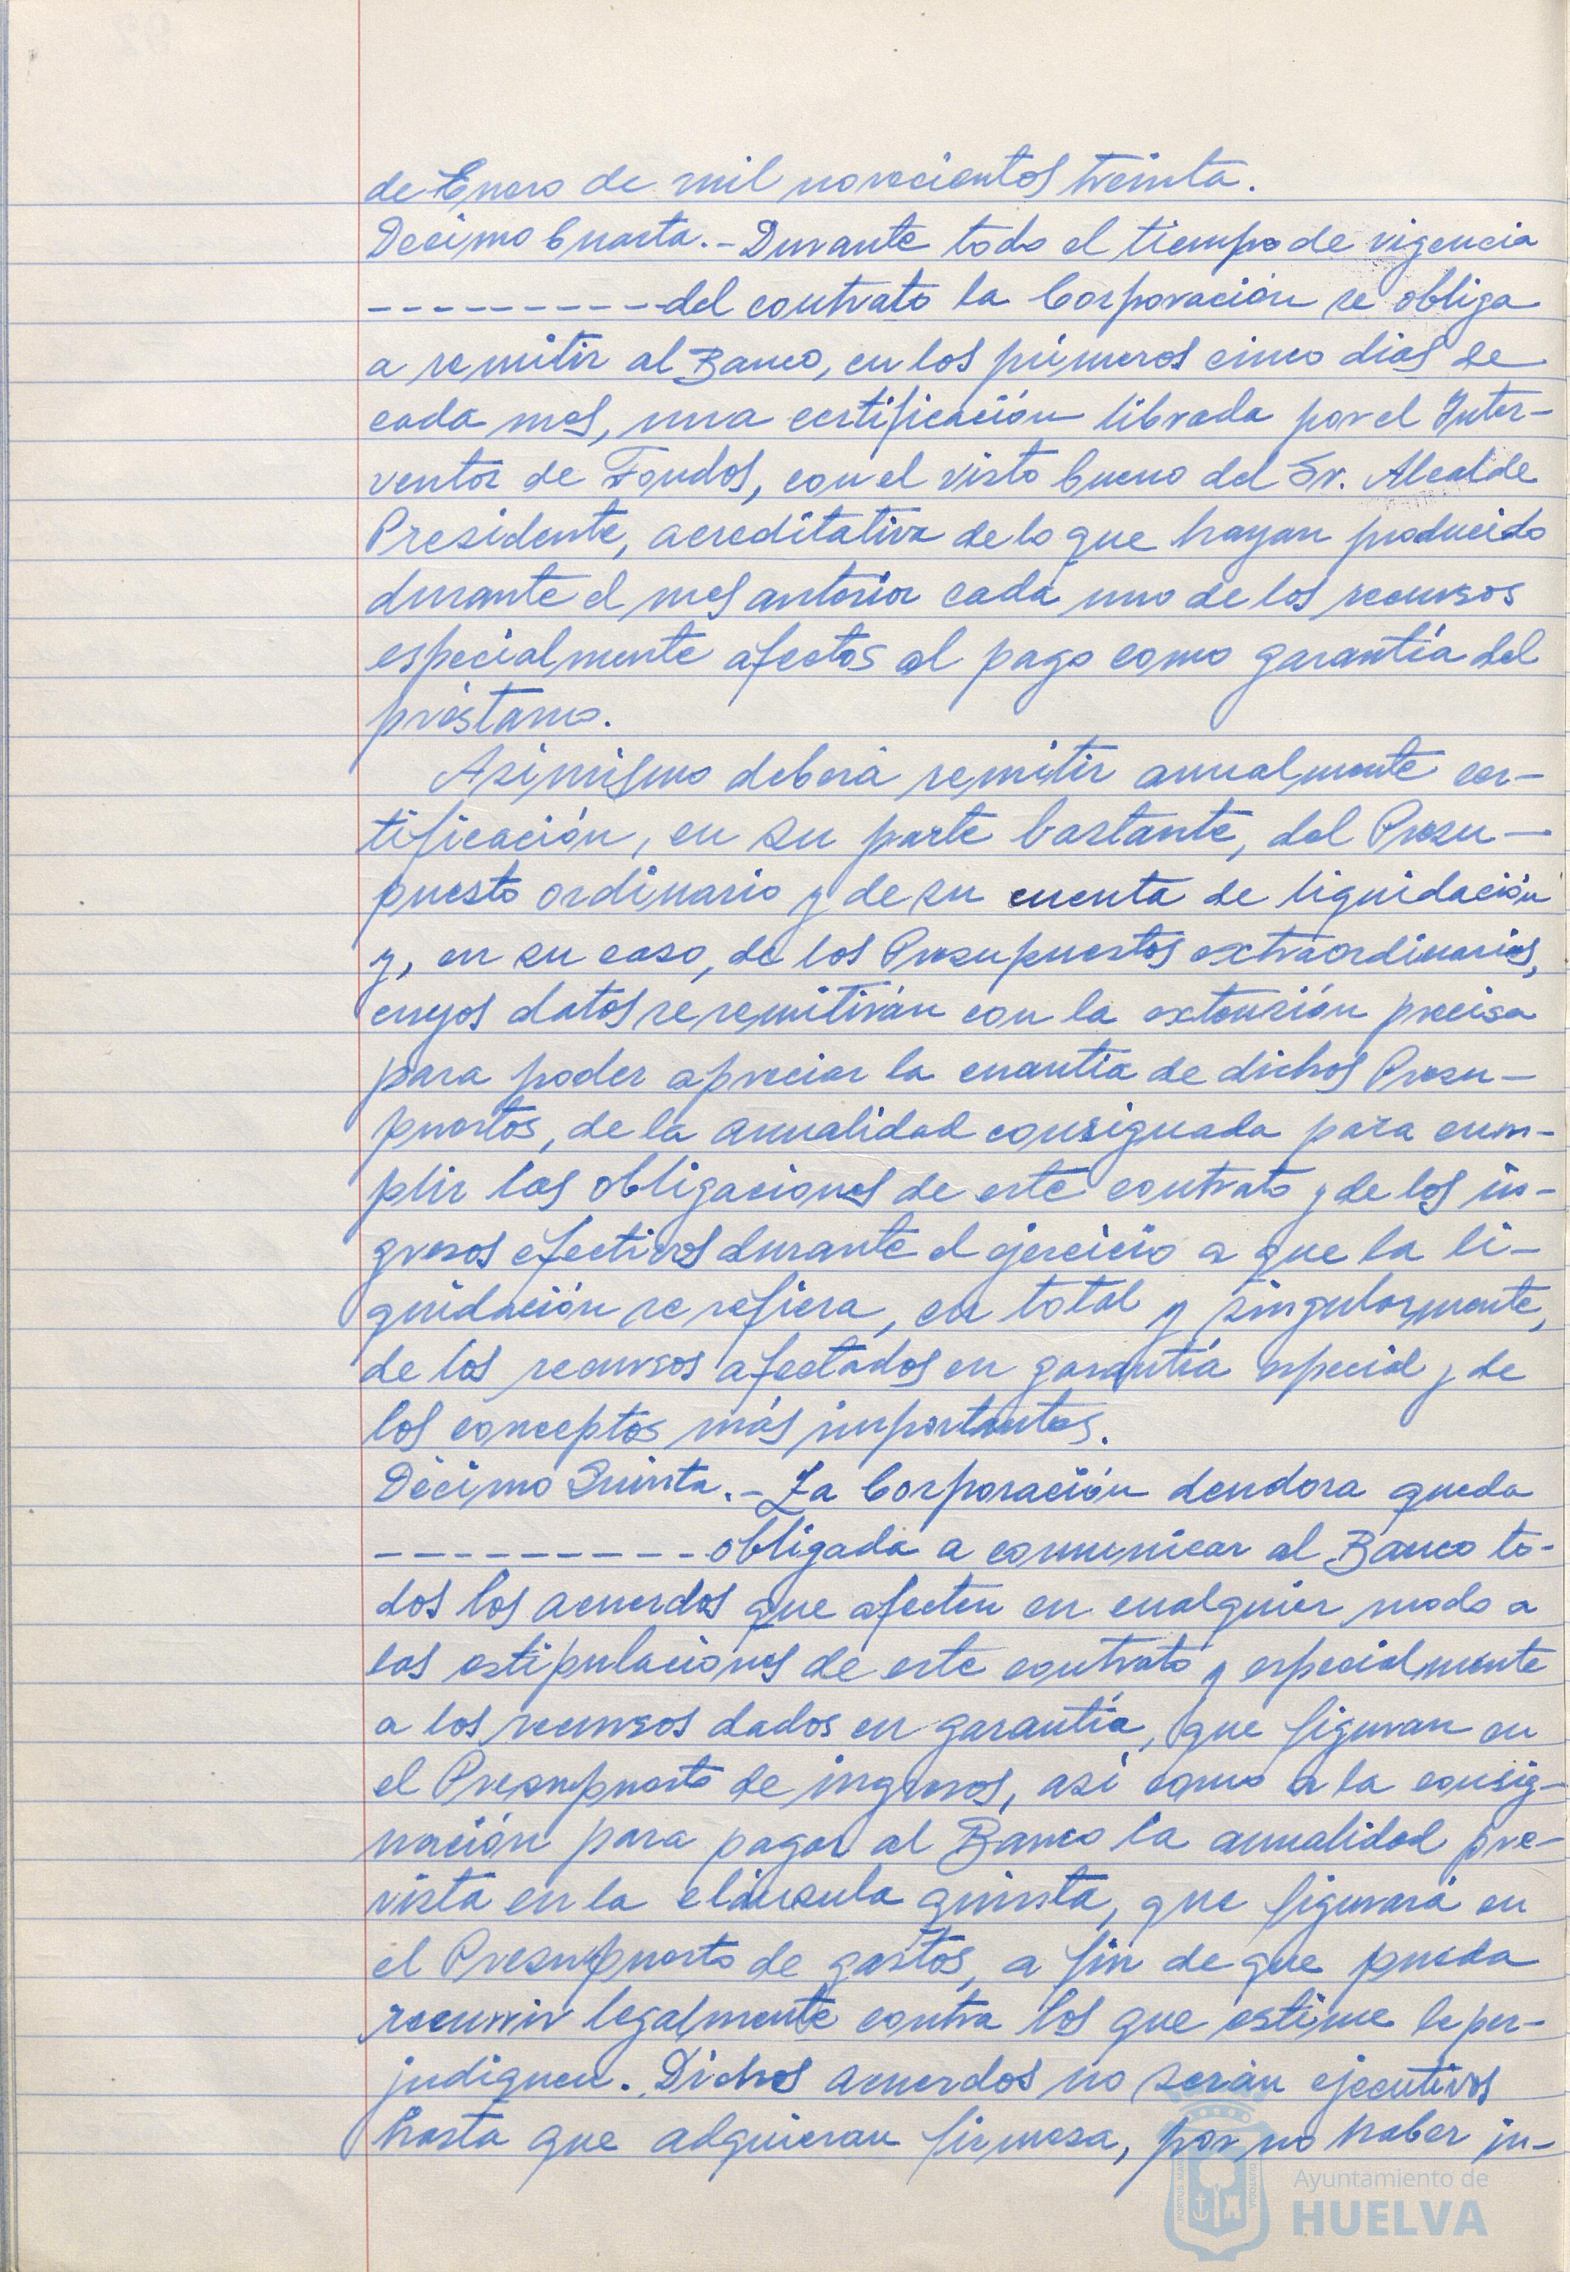 de Enero de mil novecientos treinta.
Decimo Cuarta.- Durante todo el tiempo de vigencia
- - - - - - - - - - del contrato la Corporación se obliga
a remitir al Banco, en los primeros cinco dias de
cada mes, una certificación librada por el Inter-
ventor de Fondos, con el visto bueno del Sr. Alcalde
Presidente, acreditativa de lo que hayan producido
durante el mes anterior cada uno de los recursos
especialmente afectos al pago como garantía del
préstamo.
Asimismo deberá remitir anualmente cer-
tificación, en su parte bastante, del Presu-
puesto ordinario y de su cuenta de liquidación
y, en su caso, de los Presupuestos extraordinarios,
cuyos datos se remitirán con la extensión precisa
para poder apreciar la cuantía de dichos Presu-
puestos, de la anualidad consignada para cum-
plir las obligaciones de este contrato y de los in-
gresos efectivos durante el ejercicio a que la li-
quidación se refiera, en total y singularmente,
de los recursos afectados en garantía especial y de
los conceptos más importantes.
Décimo Quinta.- La Corporación deudora queda
- - - - - - - - - - obligada a comunicar al Banco to-
dos los acuerdos que afecten en cualquier modo a
las estipulaciones de este contrato y especialmente
a los recursos dados en garantía, que figuran en
el Presupuesto de ingresos, así como a la consig-
nación para pagar al Banco la anualidad pre-
vista en la cláusula quinta, que figurará en
el Presupuesto de gastos, a fin de que pueda
recurrir legalmente contra los que estime le per-
judiquen. Dichos acuerdos no serán ejecutivos
hasta que adquieran firmesa, por no haber in-
Ayuntamiento de
HUELVA